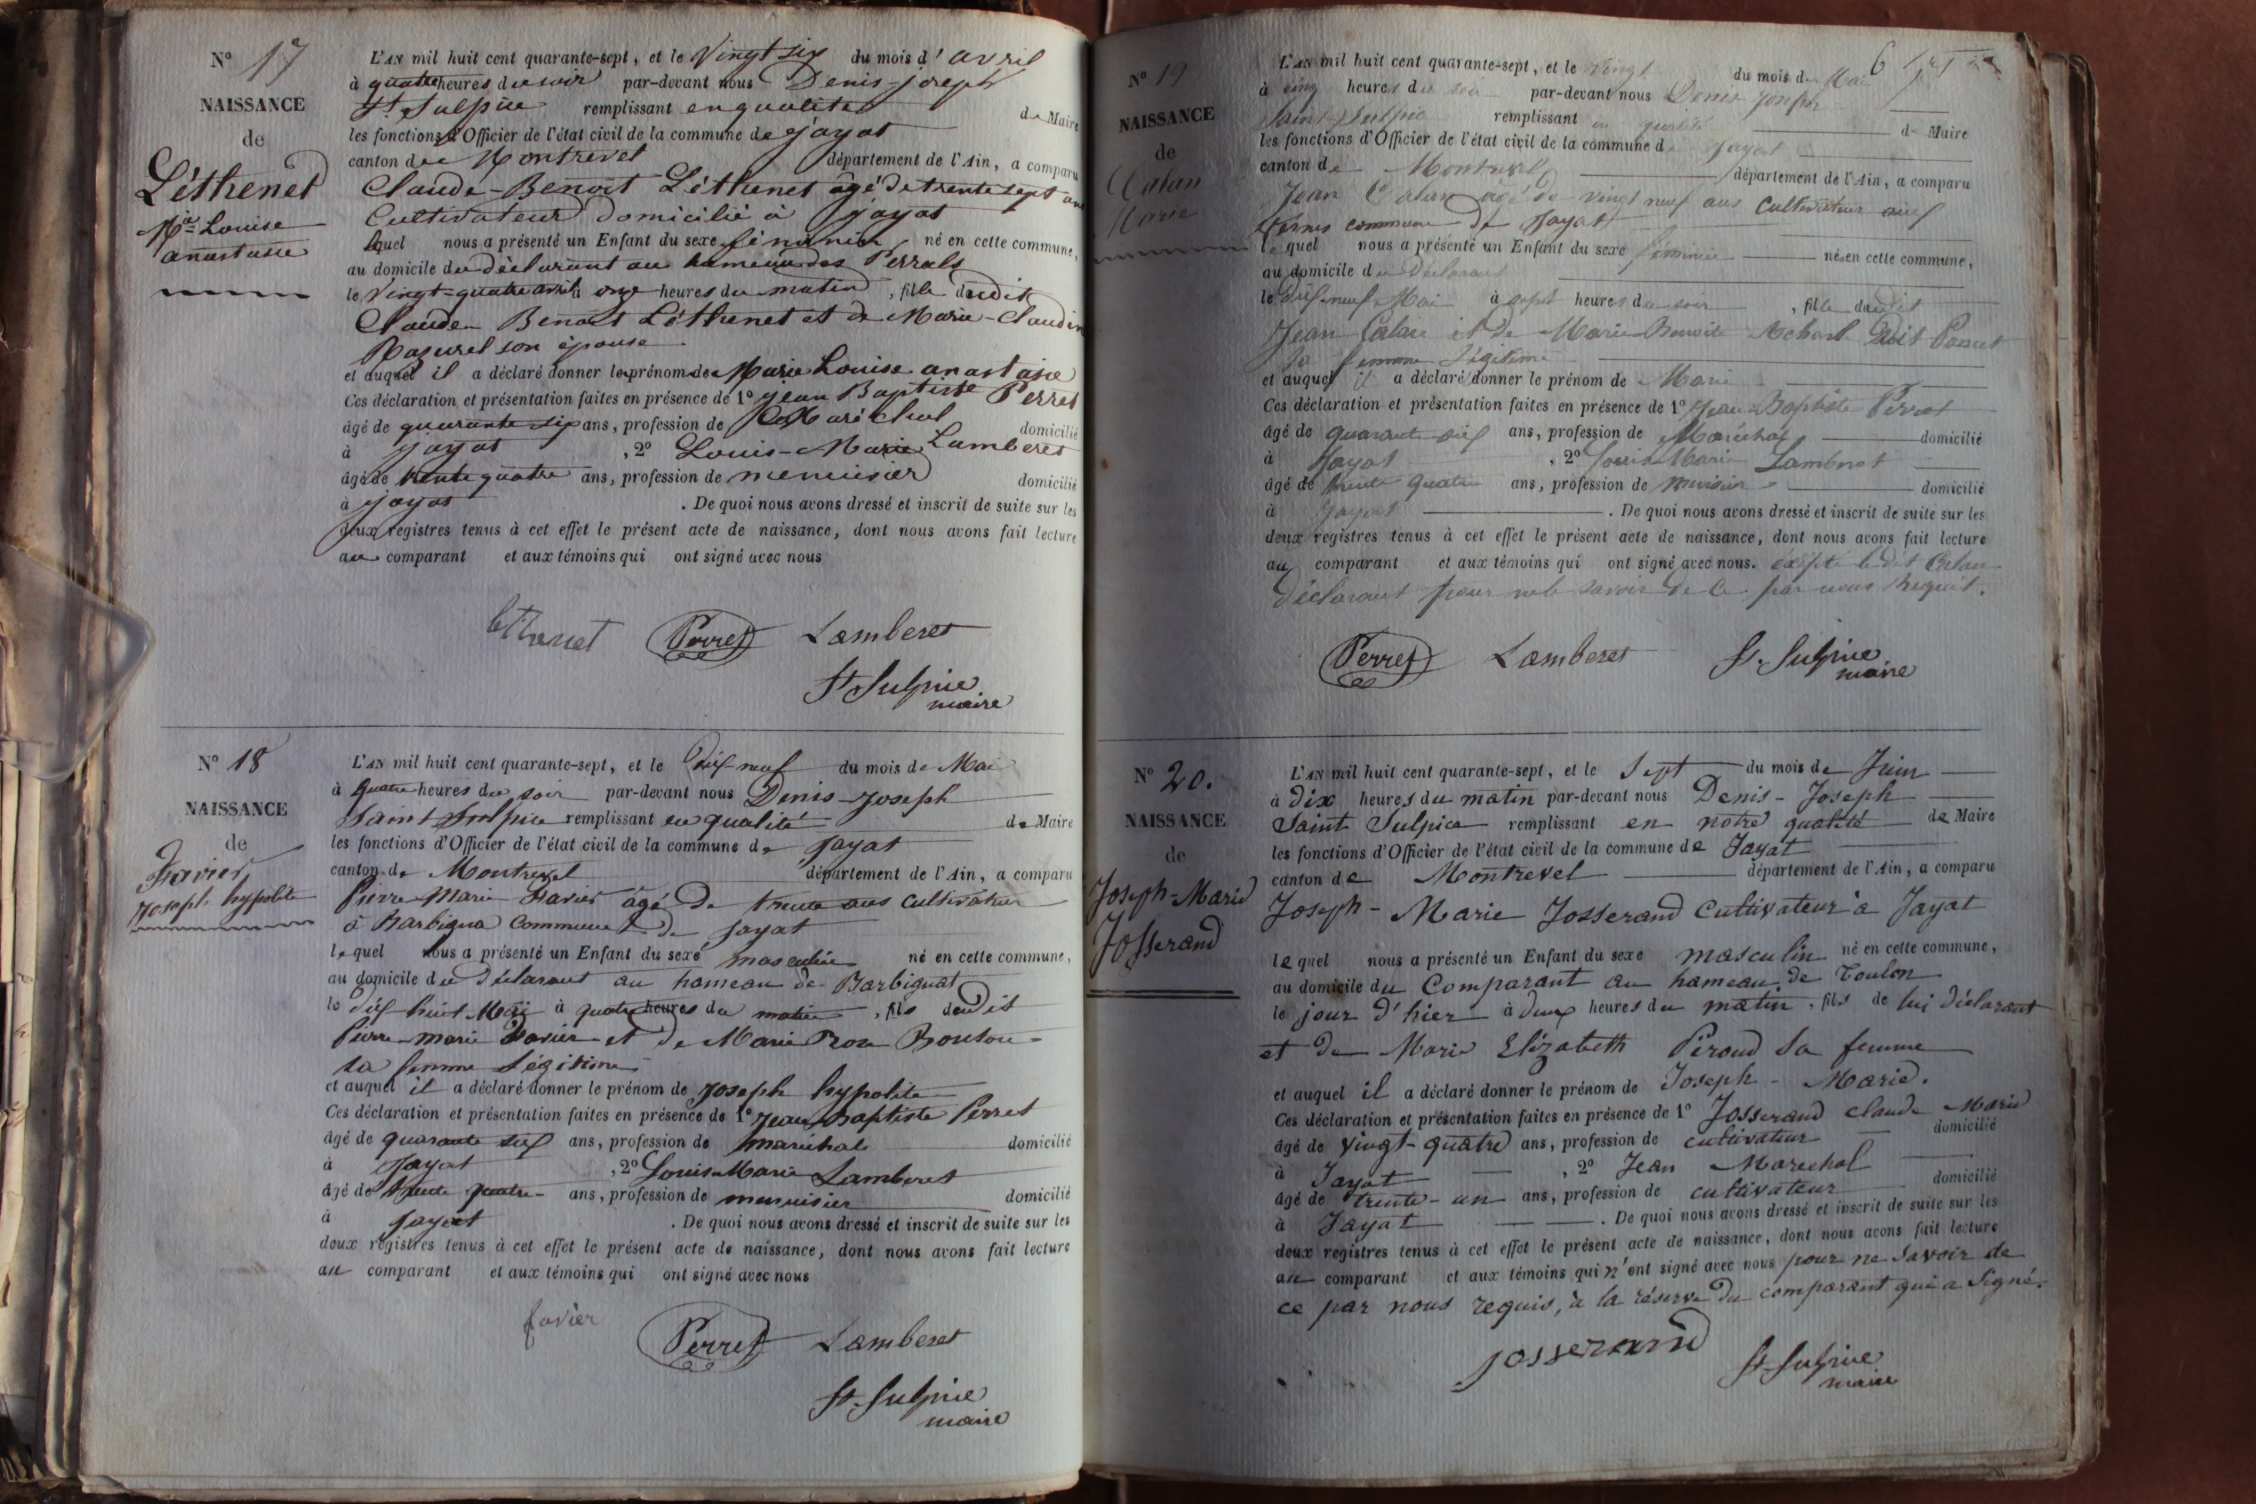 N° 17
NAISSANCE
de
Léthenet
Mie Louise
anastasie
L'AN mil huit cent quarante-sept, et le Vingt six du mois d'avril
à quatre heures du soir par-devant nous Denis-joseph
St Sulpice remplissant en qualité de Maire
les fonctions d'Officier de l'état civil de la commune de jayat
canton de Montrevel département de l'Ain, a comparu
Claude-Benoit Léthenet âgé de trente sept ans
Cultivateur domicilié à jayat
lequel nous a présenté un Enfant du sexe féminin, né en cette commune,
au domicile du déclarant au hameau des Perrals
le Vingt-quatre avril à onze heures du matin, fille dudit
Claude Benoit Léthenet et de Marie-Claudine
Razurel son épouse
et auquel il a déclaré donner le prénom de Marie Louise anastasie
Ces déclaration et présentation faites en présence de 1° jean Baptiste Perret
âgé de quarante six ans, profession de Maréchal domicilié
à jayat, 2° Louis-Marie Lamberet
âgé de trente quatre ans, profession de menuisier domicilié
à jayat. De quoi nous avons dressé et inscrit de suite sur les
deux registres tenus à cet effet le présent acte de naissance, dont nous avons fait lecture
au comparant et aux témoins qui ont signé avec nous
Lethenet Perret Lamberet
St Sulpice
maire
N° 18
NAISSANCE
de
Favier
Joseph hypolite
L'AN mil huit cent quarante-sept, et le Dix-neuf du mois de Mai
à quatre heures du soir par-devant nous Denis-Joseph
Saint Sulpice remplissant en qualité de Maire
les fonctions d'Officier de l'état civil de la commune de Jayat
canton de Montrevel département de l'Ain, a comparu
Pierre Marie Favier âgé de trente ans cultivateur
à Barbigna commune de Jayat
lequel nous a présenté un Enfant du sexe masculin né en cette commune,
au domicile du déclarant au hameau de Barbignat
le dix huit Mai à quatre heures du matin, fils dudit
Pierre marie Favier et de Marie Rose Bouton
sa femme légitime
et auquel il a déclaré donner le prénom de Joseph hypolite
Ces déclaration et présentation faites en présence de 1° Jean Baptiste Perret
âgé de quarante six ans, profession de maréchal domicilié
à Jayat, 2° Louis Marie Lamberet
âgé de trente quatre ans, profession de menuisier domicilié
à Jayat. De quoi nous avons dressé et inscrit de suite sur les
deux registres tenus à cet effet le présent acte de naissance, dont nous avons fait lecture
au comparant et aux témoins qui ont signé avec nous
favier Perret Lamberet
St Sulpice
maire
6
N° 19
NAISSANCE
de
Calan
Marie
L'AN mil huit cent quarante-sept, et le vingt du mois de Mai
à cinq heures du soir par-devant nous Denis Joseph
Saint Sulpice remplissant en qualité de Maire
les fonctions d'Officier de l'état civil de la commune de Jayat
canton de Montrevel département de l'Ain, a comparu
Jean Calan âgé de vingt neuf ans cultivateur aux
ternes commune de Jayat
lequel nous a présenté un Enfant du sexe féminin né en cette commune,
au domicile du Déclarant
le dix neuf Mai à sept heures du soir, fille dudit
Jean Calan et de Marie Benoite dit
sa femme légitime
et auquel il a déclaré donner le prénom de Marie
Ces déclaration et présentation faites en présence de 1° Jean Baptiste Perret
âgé de quarante six ans, profession de Maréchal domicilié
à Jayat, 2° Louis Marie Lamberet
âgé de trente quatre ans, profession de menuisier domicilié
à Jayat. De quoi nous avons dressé et inscrit de suite sur les
deux registres tenus à cet effet le présent acte de naissance, dont nous avons fait lecture
au comparant et aux témoins qui ont signé avec nous. éxepté le dit Calan
déclarant pour ne le savoir de ce par nous Requit.
Perret Lamberet St. Sulpice
maire
N° 20.
NAISSANCE
de
Joseph-Marie
Josserand
L'AN mil huit cent quarante-sept, et le Sept du mois de Juin
à dix heures du matin par-devant nous Denis-Joseph
Saint Sulpice remplissant en notre qualité de Maire
les fonctions d'Officier de l'état civil de la commune de Jayat
canton de Montrevel département de l'Ain, a comparu
Joseph-Marie Josserand Cultivateur à Jayat
lequel nous a présenté un Enfant du sexe masculin né en cette commune,
au domicile du Comparant au hameau de Toulon
le jour d'hier à deux heures du matin, fils de lui déclarant
et de Marie Elizabeth Péroud sa femme
et auquel il a déclaré donner le prénom de Joseph-Marie.
Ces déclaration et présentation faites en présence de 1° Josserand claude Marie
âgé de vingt-quatre ans, profession de cultivateur domicilié
à Jayat, 2° Jean Marechal
âgé de trente-un ans, profession de cultivateur domicilié
à Jayat. De quoi nous avons dressé et inscrit de suite sur les
deux registres tenus à cet effet le présent acte de naissance, dont nous avons fait lecture
au comparant et aux témoins qui n'ont signé avec nous pour ne savoir de
ce par nous requis, à la réserve du comparant qui a signé.
josserand St Sulpice
maire